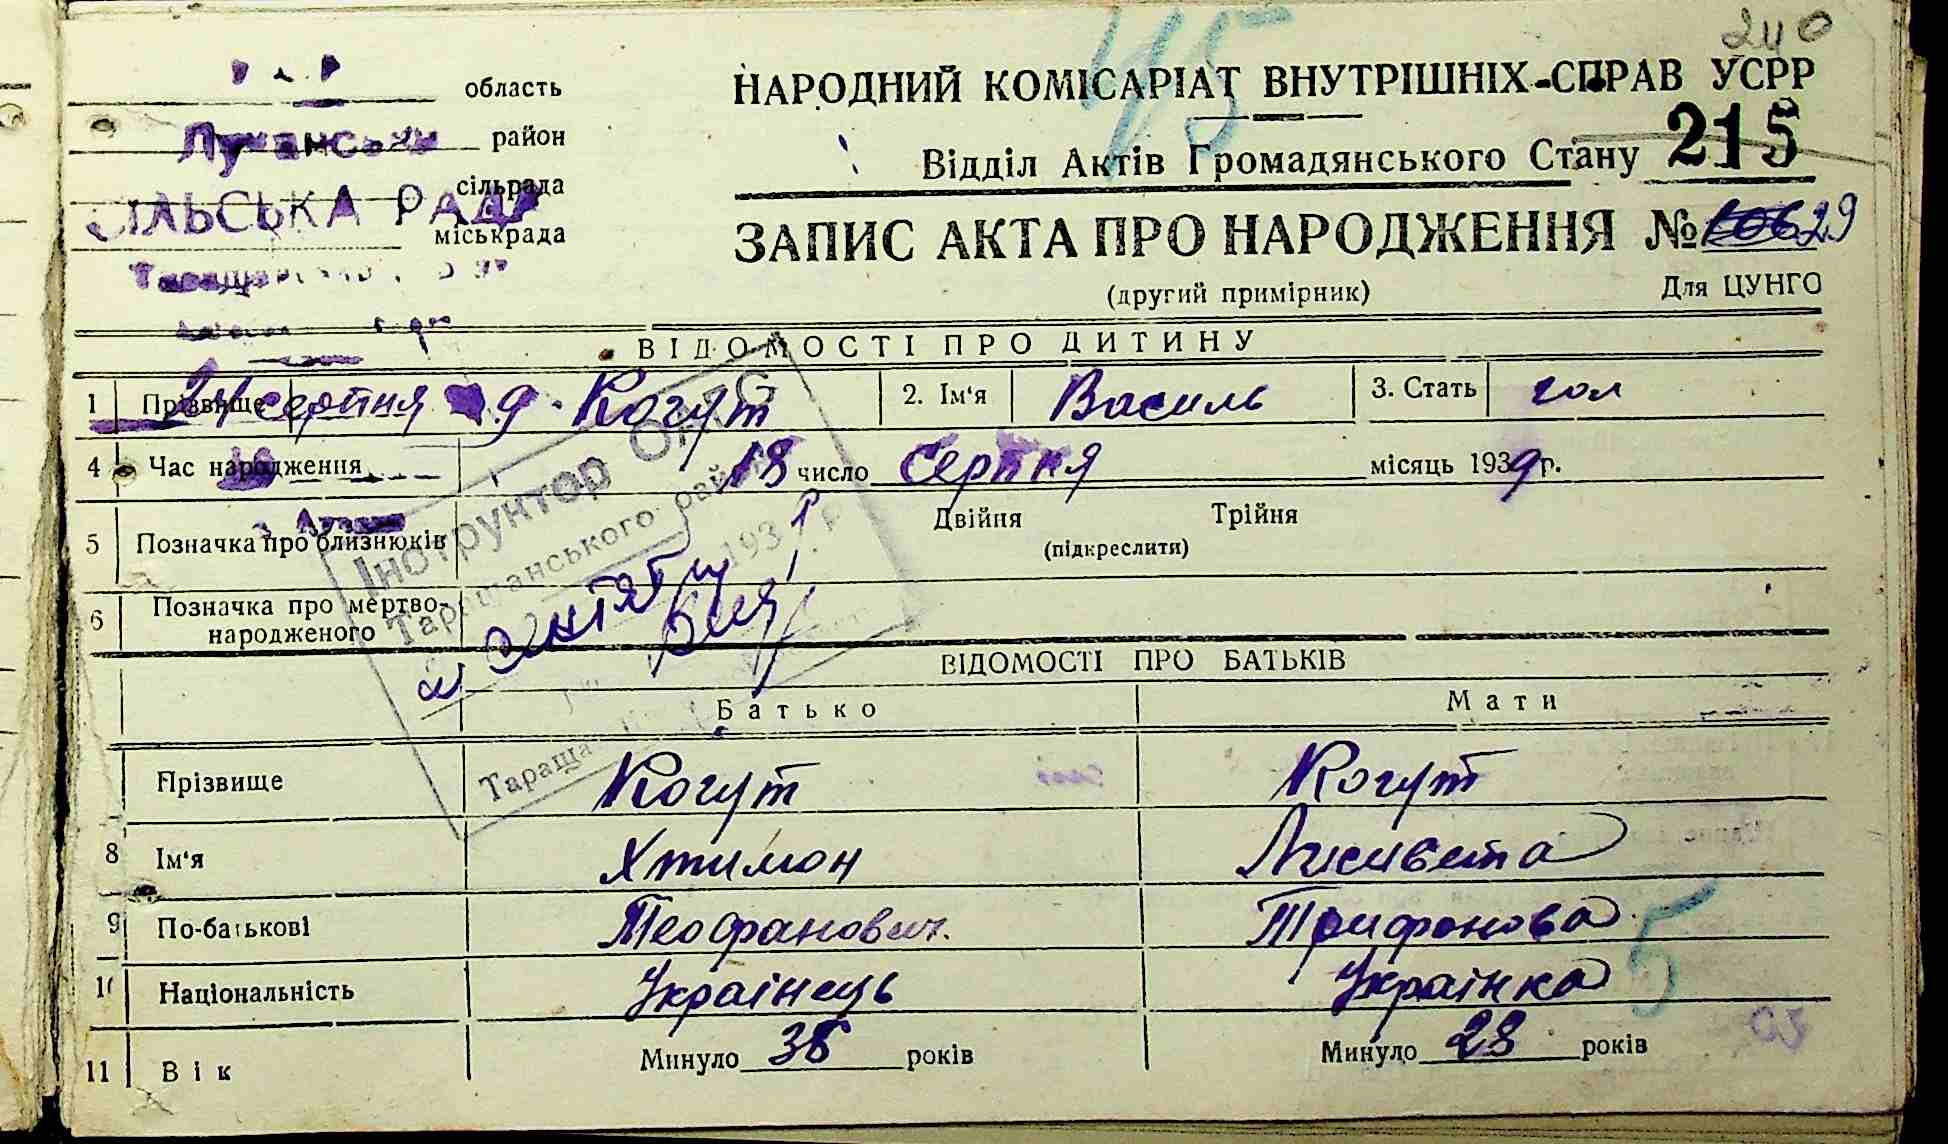 240
45
область
НАРОДНИЙ КОМІСАРІАТ ВНУТРІШНІХ СПРАВ УСРР
район
Відділ Актів Громадянського Стану 215
сільрада
СІЛЬСЬКА РАДА
міськрада
ЗАПИС АКТА ПРО НАРОДЖЕННЯ № 29
(другий примірник) Для ЦУНГО
ВІДОМОСТІ ПРО ДИТИНУ
1 Прізвище серпня Когут 2. Ім'я Василь 3. Стать чол
4 Час народження 18 число Серпня місяць 1939 р.
5 Позначка про близнюків Двійня Трійня
(підкреслити)
6 Позначка про мертво-
народженого
Інструктор ОАГС
Таращанського району
193 р.
ВІДОМОСТІ ПРО БАТЬКІВ
Батько Мати
Прізвище Когут Когут
8 Ім'я Хтимон Лисивета
9 По-батькові Теофанович Трифонова
5
10 Національність Українець Українка
11 Вік Минуло 38 років Минуло 28 років